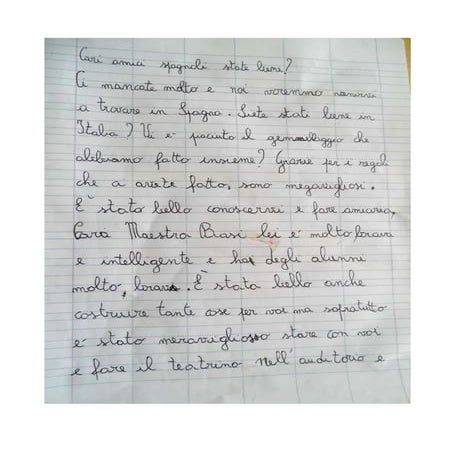 Cari amici spagnoli state bene?
Ci mancate molto e noi voremmo venirvi
a trovare in Spagna. Siete stati bene in
Italia? Vi è piaciuto il gemellaggio che
abbiamo fatto insieme? Grazie per i regali
che a avete fatto, sono megavigliosi.
E' stato bello conoscervi e fare amicizia.
Cara Maestra Biasi lei è molto brava
e intelligente e hai degli alunni
molto, bravi. È stata bello anche
costruire tante cose per voi ma sopratutto
è stato meraviglioso stare con voi
e fare il teatrino nell'auditorio e